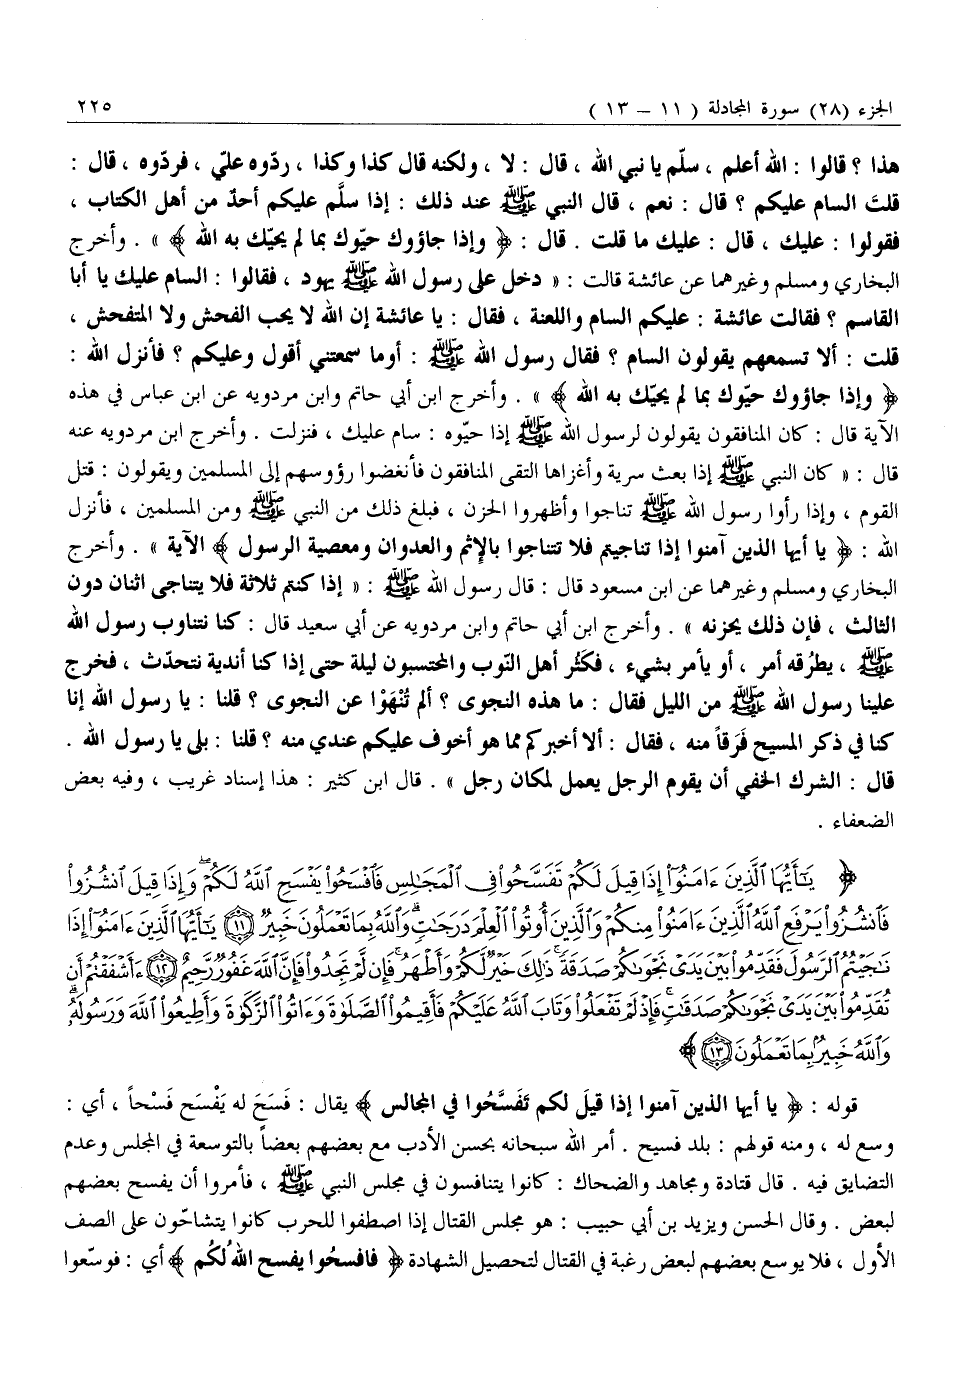 الجزء (٢٨) سورة المجادلة ( ١١ - ١٣ ) ٢٢٥
هذا ؟ قالوا : الله أعلم ، سلّم يا نبي الله ، قال : لا ، ولكنه قال كذا وكذا ، ردّوه عليّ ، فردّوه ، قال :
قلتَ السام عليكم ؟ قال : نعم ، قال النبي ﷺ عند ذلك : إذا سلَّم عليكم أحدٌ من أهل الكتاب ،
فقولوا : عليك ، قال : عليك ما قلت . قال : ﴿ وإذا جاؤوك حيّوك بما لم يحيّك به الله ﴾ » . وأخرج
البخاري ومسلم وغيرهما عن عائشة قالت : « دخل على رسول الله ﷺ يهود ، فقالوا : السام عليك يا أبا
القاسم ؟ فقالت عائشة : عليكم السام واللعنة ، فقال : يا عائشة إن الله لا يحب الفحش ولا المتفحش ،
قلت : ألا تسمعهم يقولون السام ؟ فقال رسول الله ﷺ : أوما سمعتني أقول وعليكم ؟ فأنزل الله :
﴿ وإذا جاؤوك حيّوك بما لم يحيّك به الله ﴾ » . وأخرج ابن أبي حاتم وابن مردويه عن ابن عباس في هذه
الآية قال : كان المنافقون يقولون لرسول الله ﷺ إذا حيّوه : سام عليك ، فنزلت . وأخرج ابن مردويه عنه
قال : « كان النبي ﷺ إذا بعث سرية وأغزاها التقى المنافقون فأنغضوا رؤوسهم إلى المسلمين ويقولون : قتل
القوم ، وإذا رأوا رسول الله ﷺ تناجوا وأظهروا الحزن ، فبلغ ذلك من النبي ﷺ ومن المسلمين ، فأنزل
الله : ﴿ يا أيها الذين آمنوا إذا تناجيتم فلا تتناجوا بالإثم والعدوان ومعصية الرسول ﴾ الآية » . وأخرج
البخاري ومسلم وغيرهما عن ابن مسعود قال : قال رسول الله ﷺ : « إذا كنتم ثلاثة فلا يتناجى اثنان دون
الثالث ، فإن ذلك يحزنه » . وأخرج ابن أبي حاتم وابن مردويه عن أبي سعيد قال : كنا نتناوب رسول الله
ﷺ ، يطرُقه أمر ، أو يأمر بشيء ، فكَثُر أهل النّوب والمحتسبون ليلة حتى إذا كنا أندية نتحدّث ، فخرج
علينا رسول الله ﷺ من الليل فقال : ما هذه النجوى ؟ ألم تُنْهَوْا عن النجوى ؟ قلنا : يا رسول الله إنا
كنا في ذكر المسيح فَرَقاً منه ، فقال : ألا أخبركم مما هو أخوف عليكم عندي منه ؟ قلنا : بلى يا رسول الله .
قال : الشرك الخفي أن يقوم الرجل يعمل لمكان رجل » . قال ابن كثير : هذا إسناد غريب ، وفيه بعض
الضعفاء .
﴿ يَٰٓأَيُّهَا ٱلَّذِينَ ءَامَنُوٓا۟ إِذَا قِيلَ لَكُمْ تَفَسَّحُوا۟ فِى ٱلْمَجَٰلِسِ فَٱفْسَحُوا۟ يَفْسَحِ ٱللَّهُ لَكُمْ ۖ وَإِذَا قِيلَ ٱنشُزُوا۟
فَٱنشُزُوا۟ يَرْفَعِ ٱللَّهُ ٱلَّذِينَ ءَامَنُوا۟ مِنكُمْ وَٱلَّذِينَ أُوتُوا۟ ٱلْعِلْمَ دَرَجَٰتٍ ۚ وَٱللَّهُ بِمَا تَعْمَلُونَ خَبِيرٌ ﴿١١﴾ يَٰٓأَيُّهَا ٱلَّذِينَ ءَامَنُوٓا۟ إِذَا
نَٰجَيْتُمُ ٱلرَّسُولَ فَقَدِّمُوا۟ بَيْنَ يَدَىْ نَجْوَىٰكُمْ صَدَقَةً ۚ ذَٰلِكَ خَيْرٌ لَّكُمْ وَأَطْهَرُ ۚ فَإِن لَّمْ تَجِدُوا۟ فَإِنَّ ٱللَّهَ غَفُورٌ رَّحِيمٌ ﴿١٢﴾ ءَأَشْفَقْتُمْ أَن
تُقَدِّمُوا۟ بَيْنَ يَدَىْ نَجْوَىٰكُمْ صَدَقَٰتٍ ۚ فَإِذْ لَمْ تَفْعَلُوا۟ وَتَابَ ٱللَّهُ عَلَيْكُمْ فَأَقِيمُوا۟ ٱلصَّلَوٰةَ وَءَاتُوا۟ ٱلزَّكَوٰةَ وَأَطِيعُوا۟ ٱللَّهَ وَرَسُولَهُۥ ۚ
وَٱللَّهُ خَبِيرٌۢ بِمَا تَعْمَلُونَ ﴿١٣﴾ ﴾
قوله : ﴿ يا أيها الذين آمنوا إذا قيلَ لكم تَفَسَّحُوا في المجالس ﴾ يقال : فَسَحَ له يَفْسَح فَسْحاً ، أي :
وسع له ، ومنه قولهم : بلد فسيح . أمر الله سبحانه بحسن الأدب مع بعضهم بعضاً بالتوسعة في المجلس وعدم
التضايق فيه . قال قتادة ومجاهد والضحاك : كانوا يتنافسون في مجلس النبي ﷺ ، فأمروا أن يفسح بعضهم
لبعض . وقال الحسن ويزيد بن أبي حبيب : هو مجلس القتال إذا اصطفوا للحرب كانوا يتشاحّون على الصف
الأول ، فلا يوسع بعضهم لبعض رغبة في القتال لتحصيل الشهادة ﴿ فافسحُوا يفسح اللهُ لكُم ﴾ أي : فوسّعوا